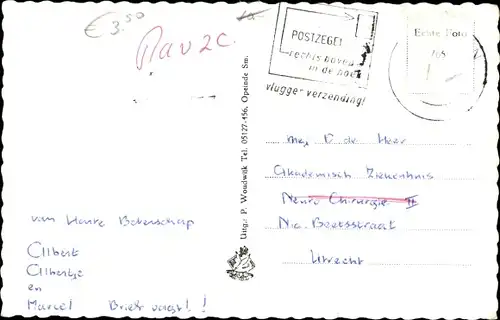 € 3.50
POSTZEGEL
rechts boven
in de hoek
vlugger verzending!
Echte Foto
Uitg.: P. Woudwijk Tel. 05127-456, Opeinde Sm.
mej D de Heer
Akademisch Ziekenhuis
Neuro Chirurgie II
Nic. Beetsstraat
Utrecht
van Harte Beterschap
Albert
Albertje
en
Marcel Brief volgt!!